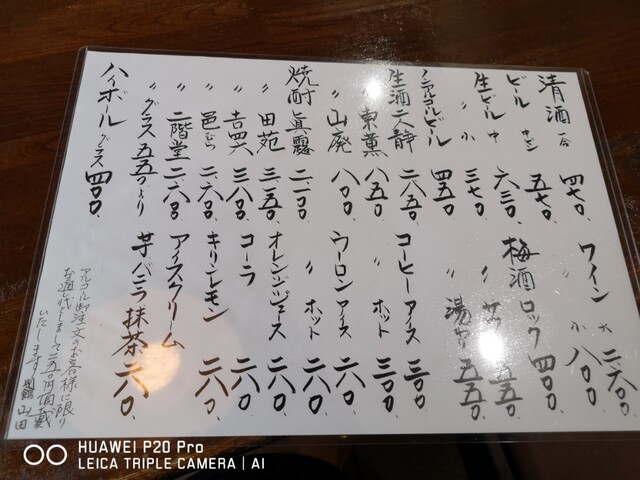 清酒 一合 四七〇.
ビール 中ビン 五七〇.
生ビール 中 六三〇.
〃 小 三七〇.
ノンアルコールビール 四五〇
生酒 二人静 二八五〇.
東薫 八五〇.
〃 山廃 八〇〇.
焼酎 眞露 二.一〇〇
〃 田苑 三.二五〇
〃 吉四六 三.八〇〇.
〃 邑から 二.六〇〇.
〃 二階堂 二.八〇〇.
〃 グラス 五五〇より
ハイボール グラス 四〇〇.
ワイン 大 二.六〇〇
〃 小 八〇〇.
梅酒 ロック 四〇〇
〃 五五〇
〃 湯サワー 五五〇.
コーヒー アイス 三〇〇
〃 ホット 三〇〇
ウーロン アイス 二六〇.
〃 ホット 二六〇.
オレンジジュース 二八〇.
コーラ 二八〇.
キリンレモン 二八〇.
アイスクリーム
芋 バニラ 抹茶 二八〇.
アルコール御注文のお客様に限り
お通し代としまして二五〇円頂戴
いたします 山田
HUAWEI P20 Pro
LEICA TRIPLE CAMERA | AI